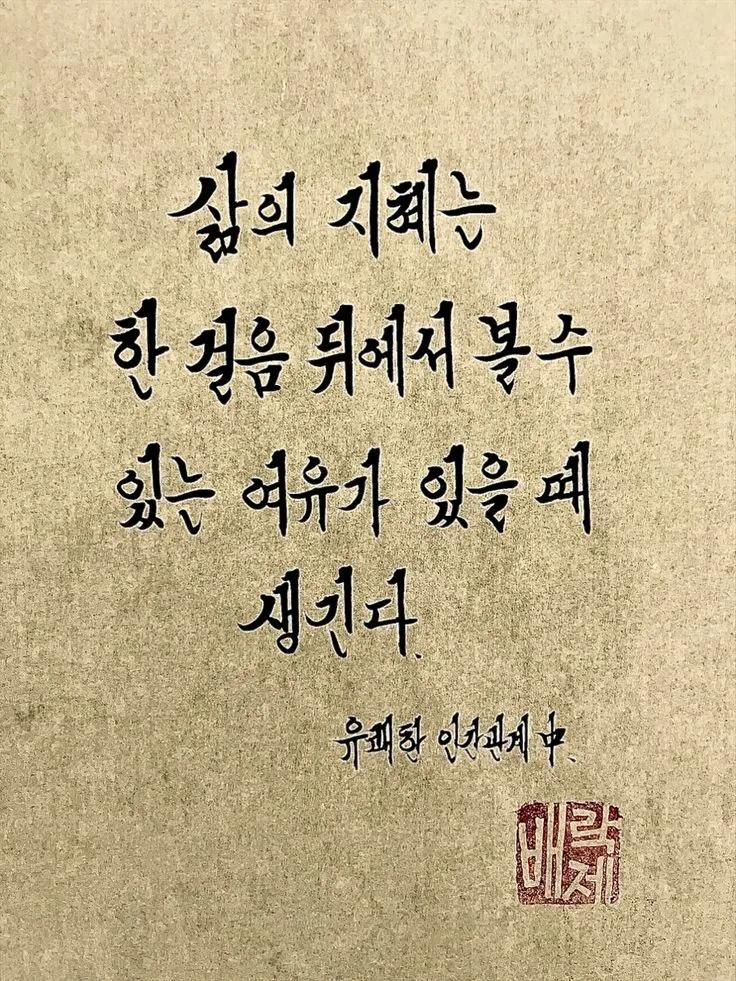 삶의 지혜는
한 걸음 뒤에서 볼 수
있는 여유가 있을 때
생긴다.
유쾌한 인간관계 中.
배락제